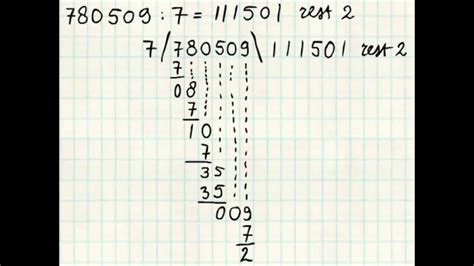 780509 : 7 = 111501 rest 2
7 / 780509 \ 111501 rest 2
7
08
7
10
7
35
35
009
7
2